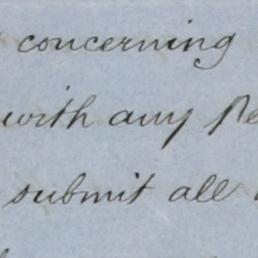 concerning
with any Pe
submit all